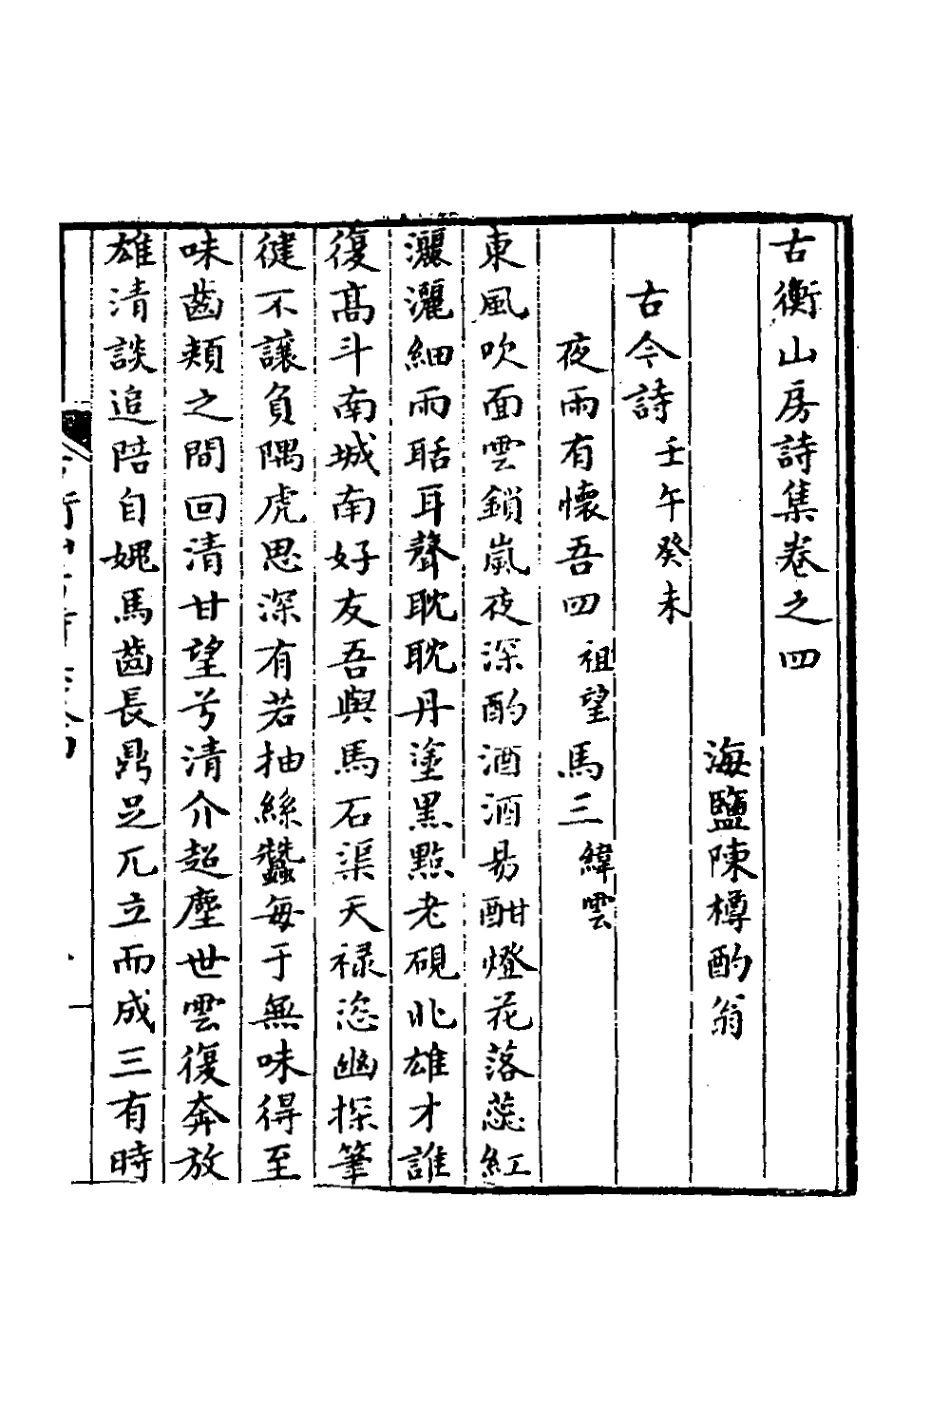 古衡山房詩集卷之四
海鹽陳樽酌翁
古今詩壬午癸未
夜雨有懷吾四祖望馬三緯雲
東風吹面雲鎖嵐夜深酌酒酒易酣燈花落蕊紅
灑灑細雨聒耳聲耽耽丹塗黑點老硯北雄才誰
復高斗南城南好友吾與馬石渠天禄恣幽探筆
健不讓負隅虎思深有若抽絲蠶每于無味得至
味齒頰之間回清甘望兮清介超塵世雲復奔放
雄清談追陪自媿馬齒長鼎足兀立而成三有時